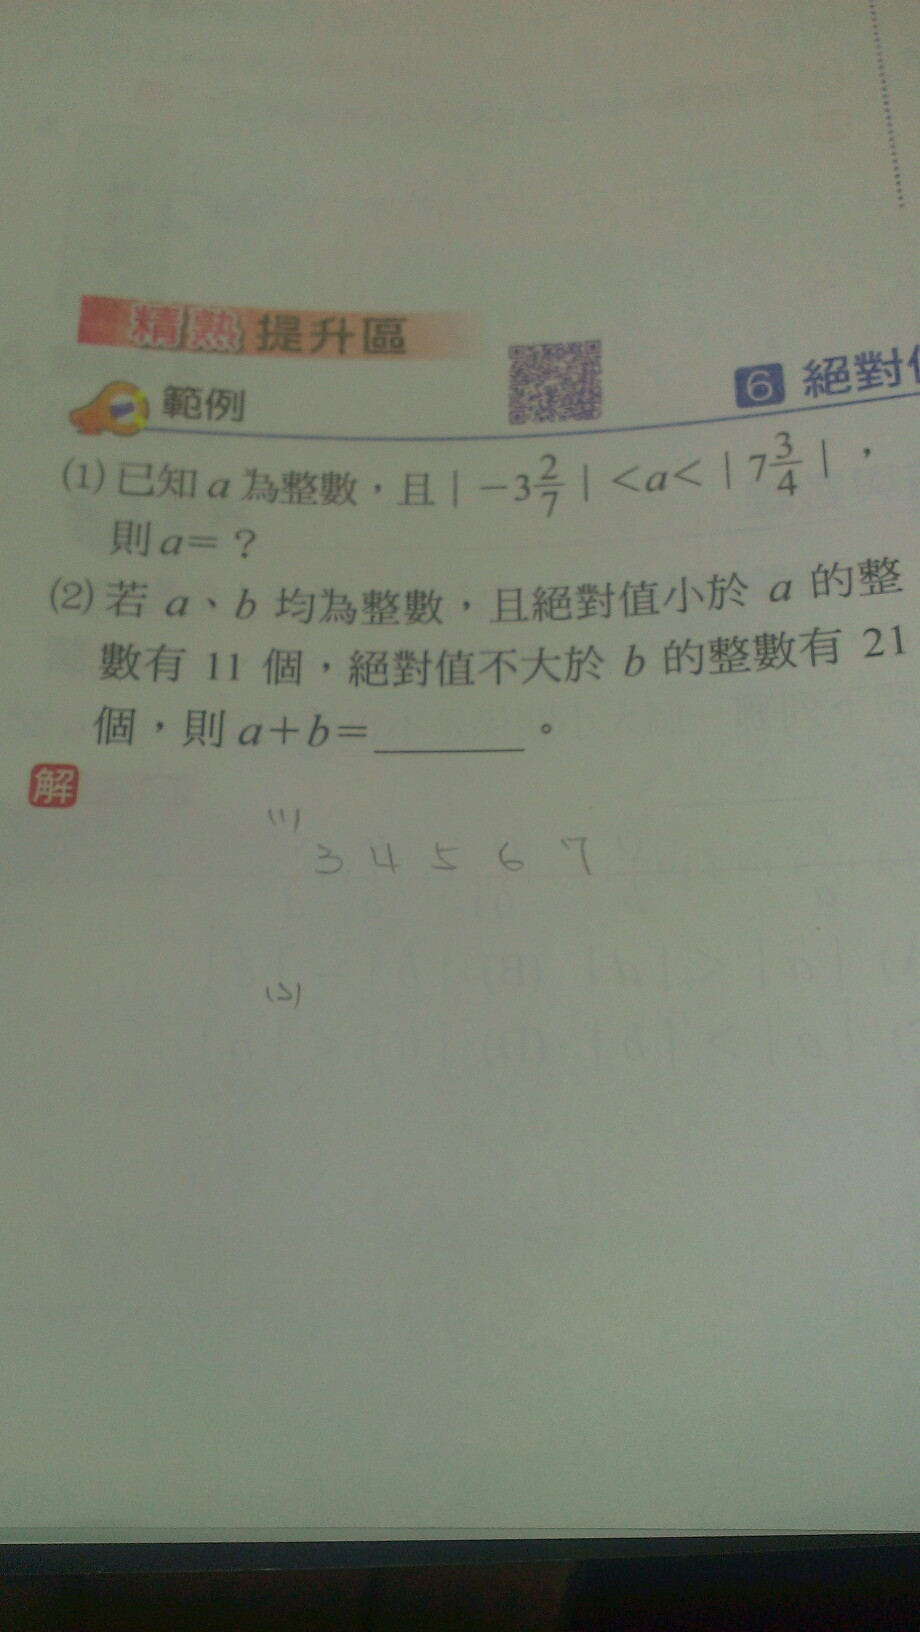 精熟提升區
範例
6 絕對
(1) 已知 a 為整數，且 | −3 2/7 | < a < | 7 3/4 | ，
則 a = ？
(2) 若 a、b 均為整數，且絕對值小於 a 的整
數有 11 個，絕對值不大於 b 的整數有 21
個，則 a＋b＝______。
解
(1)
3 4 5 6 7
(2)